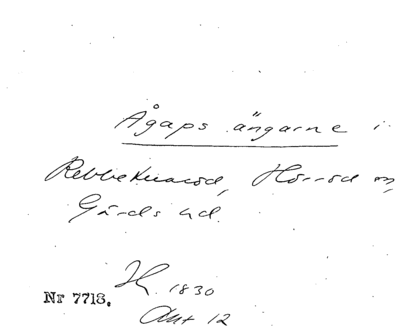 Ågaps ängarne i
Rebbeknarod, Hörröd sn,
Gärds hd.
H. 1830
Akt 12
Nr 7718.